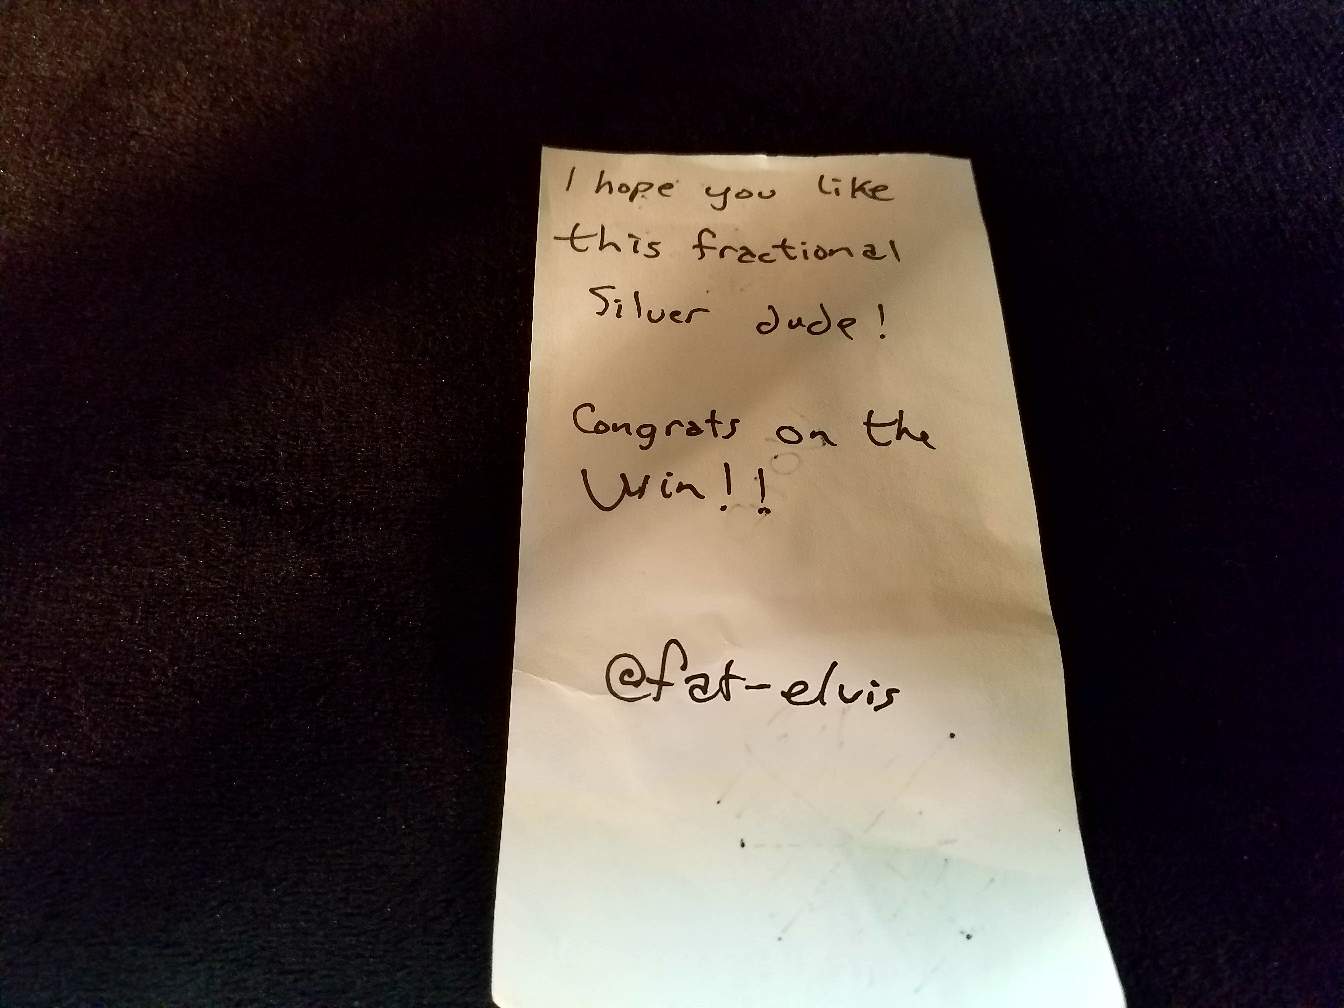 I hope you like
this fractional
Silver dude!
Congrats on the
Win!!
@fat-elvis